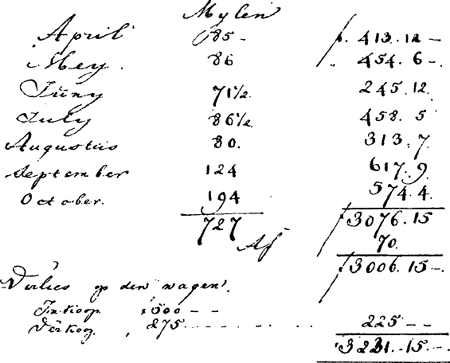 Mylen
April 85- ƒ. 413.12 -
Mey. 86 " 454.6-
Juny 71½ 245.12.
July 86½. 458.5
Augustus 80. 313.7
September 124 617.9
October. 194 574.4
727 ƒ3076.15
Af 70.
ƒ3006.15-.
Verlies op den wagen.
Inkoop ƒ500 --
Verkoop „ 275 -- 225 --
ƒ3231.15.-